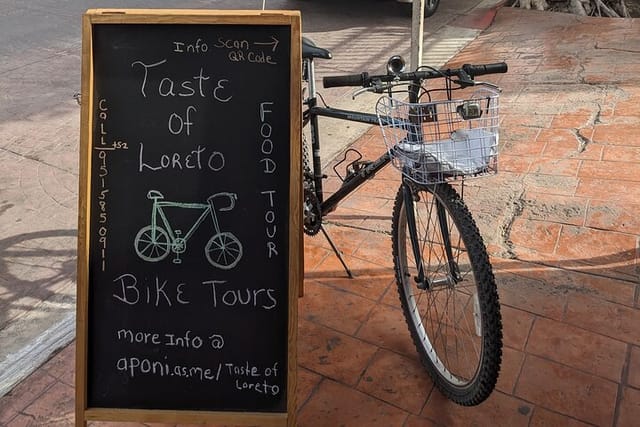 Info Scan →
QR Code
Taste
of
Loreto
Call +52 9515850911
FOOD TOUR
Bike Tours
more Info @
aponi.as.me/Taste of
Loreto